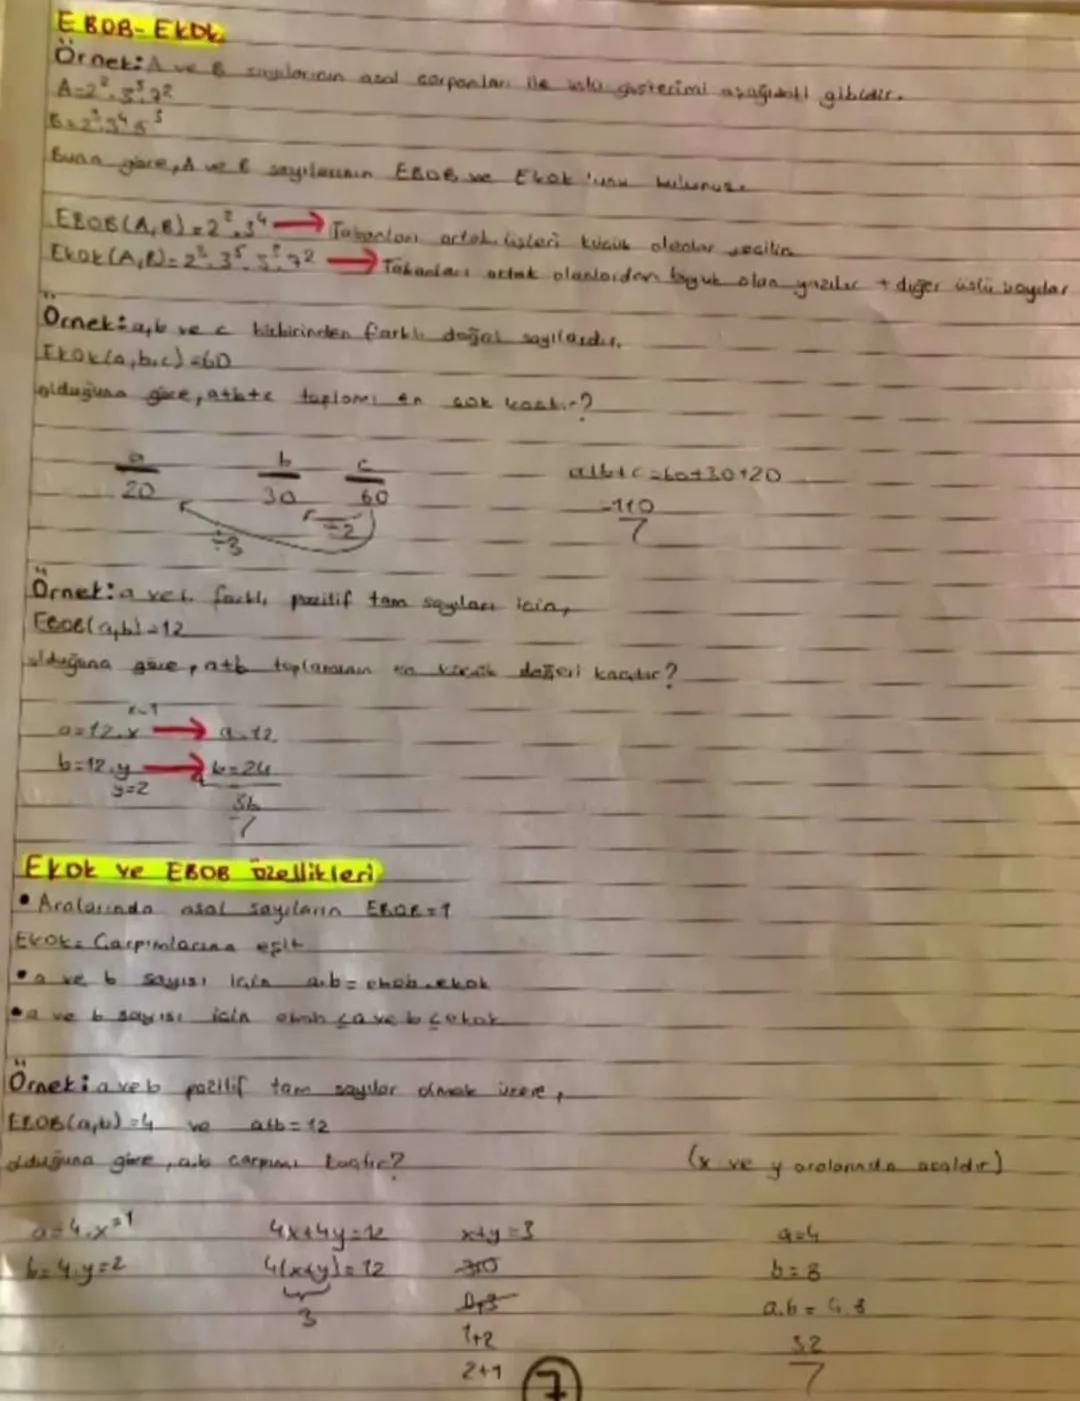 EBOB-EKOK
Örnek: A ve B sayılarının asal çarpanları ile üslü gösterimi aşağıdaki gibidir.
A=2².3⁵.7²
B=2³.3⁴.5³
Buna göre, A ve B sayılarının EBOB ve Ekok'unu bulunuz.
EBOB(A,B)=2².3⁴ → Tabanları ortak, üsleri küçük olanlar seçilir.
EKOK(A,B)=2³.3⁵.5³.7² → Tabanları ortak olanlardan büyük olan yazılır + diğer üslü sayılar
Örnek: a,b ve c birbirinden farklı doğal sayılardır.
EKOK(a,b,c)=60
olduğuna göre, a+b+c toplamı en çok kaçtır?
a b c a+b+c=60+30+20
20 30 60 =110
÷3 ÷2
Örnek: a ve b farklı pozitif tam sayıları için,
EBOB(a,b)=12
olduğuna göre, a+b toplamının en küçük değeri kaçtır?
x=1
a=12.x → a=12
b=12.y → b=24
y=2
36
EKOK ve EBOB özellikleri
• Aralarında asal sayıların EBOB=1
EKOK= Çarpımlarına eşit
• a ve b sayısı için a.b= ebob.ekok
• a ve b sayısı için ebob ≤a ve b ≤ekok
Örnek: a ve b pozitif tam sayılar olmak üzere,
EBOB(a,b)=4 ve a+b=12
olduğuna göre, a.b çarpımı kaçtır? (x ve y aralarında asaldır)
a=4.x=1 4x+4y=12 x+y=3 a=4
b=4.y=2 4(x+y)=12 3,0 b=8
3 0,3 a.b=4.8
1+2 32
2+1
7